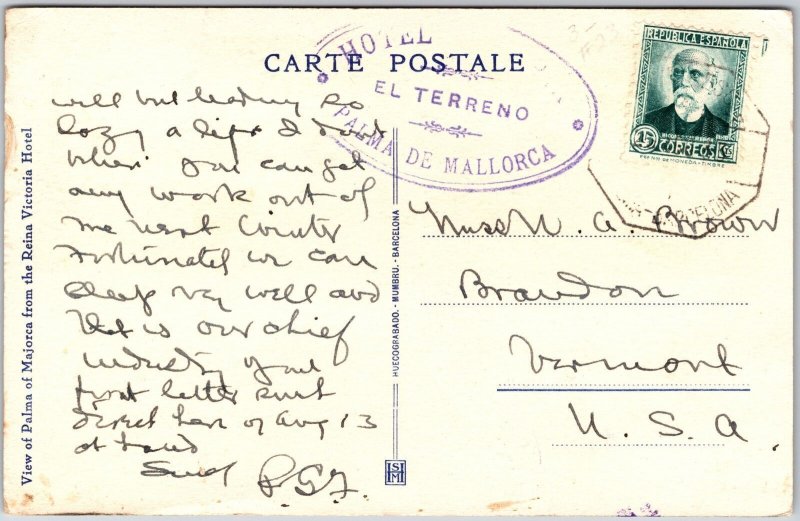 CARTE POSTALE
HOTEL
EL TERRENO
PALMA DE MALLORCA
REPUBLICA ESPAÑOLA
15 Cts
CORREOS
BARCELONA
View of Palma of Majorca from the Reina Victoria Hotel
HUECOGRABADO.-MUMBRU.-BARCELONA
well but leading so
lazy a life I don't
when you can get
any work out of
me next Winter
Fortunately we can
sleep very well and
that is our chief
industry your
first letter sent
direct here of Aug 13
at hand
P.G.F.
Miss N. A. Brown
Brandon
Vermont
U. S. A.